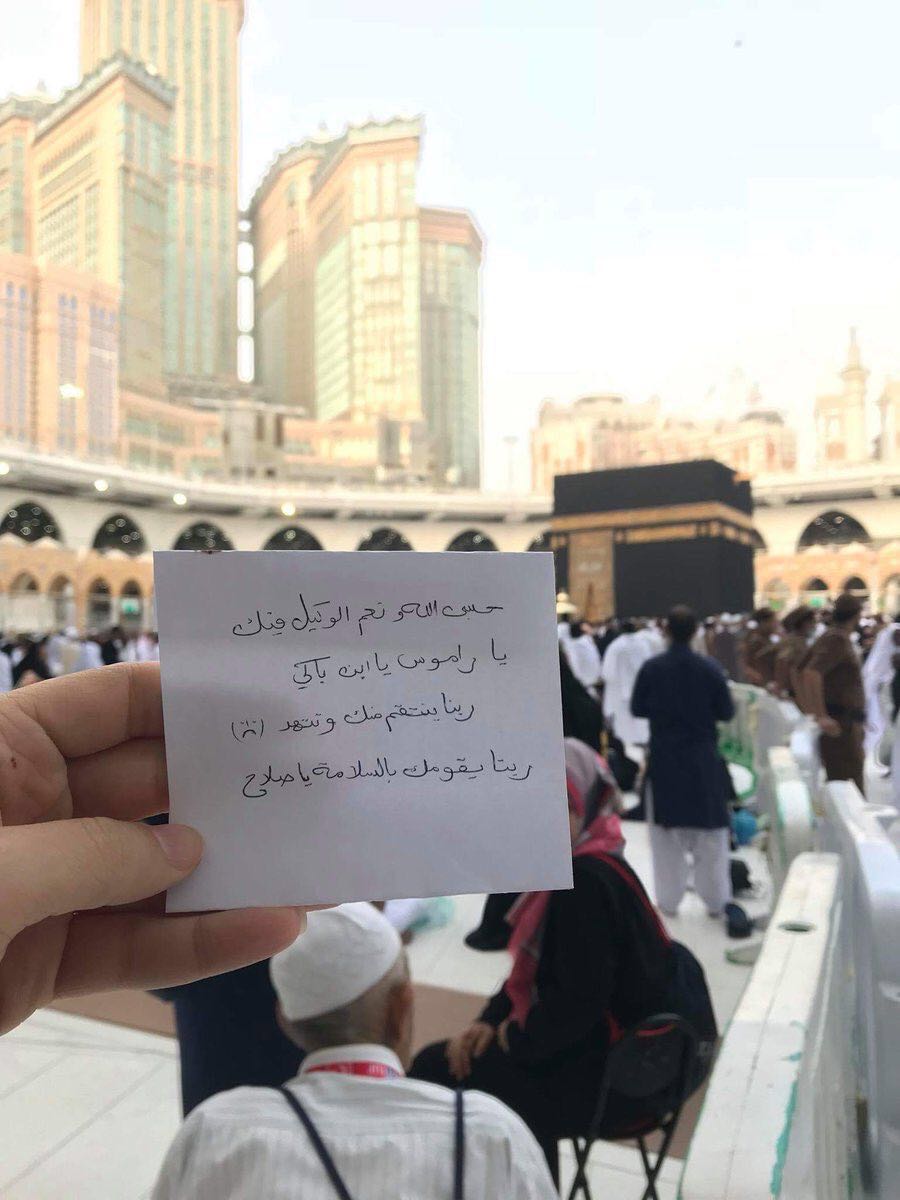 حسبى الله و نعم الوكيل فيك
يا راموس يا ابن باكي
ربنا ينتقم منك و تتهد
ربنا يقومك بالسلامة يا صلاح